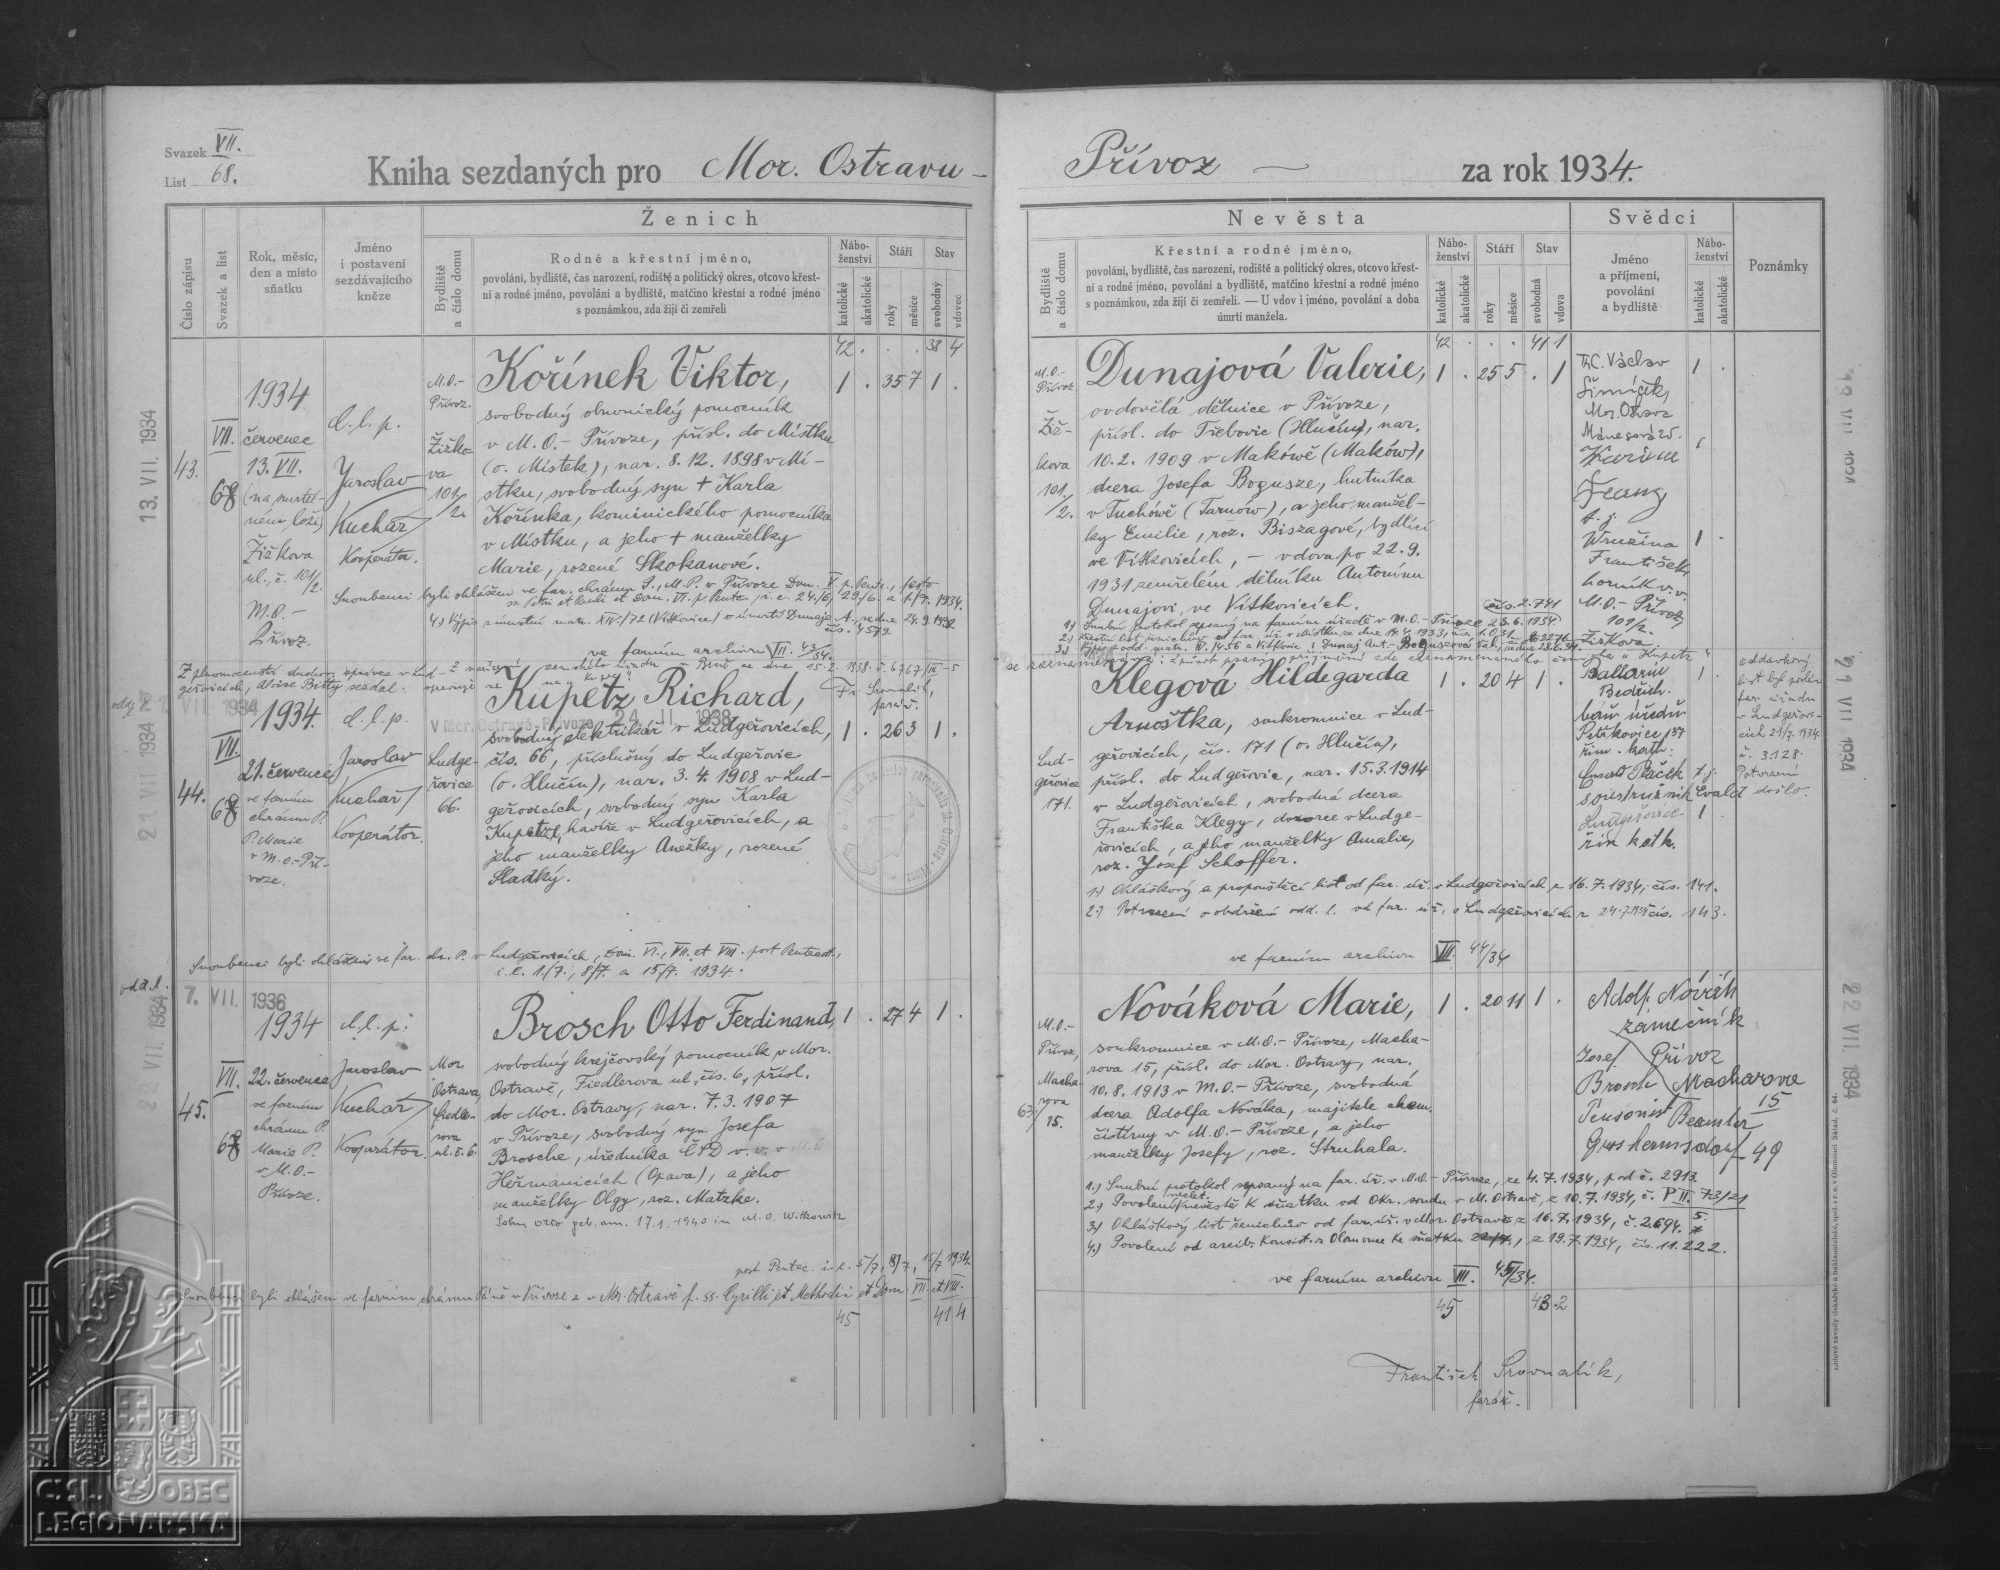 Svazek VII.
List 68.
Kniha sezdaných pro Mor. Ostravu -
Ženich
Číslo zápisu
Svazek a list
Rok, měsíc,
den a místo
sňatku
Jméno
i postavení
sezdávajícího
kněze
Bydliště
a číslo domu
Rodné a křestní jméno,
povolání, bydliště, čas narození, rodiště a politický okres, otcovo křest-
ní a rodné jméno, povolání a bydliště, matčino křestní a rodné jméno
s poznámkou, zda žijí či zemřeli
Nábo-
ženství
katolické
akatolické
Stáří
roky
měsíce
Stav
svobodný
vdovec
42 . . . 38 4
13. VII. 1934
43.
VII.
68
1934
červenec
13. VII.
(na smrtel-
ném loži)
Žižkova
ul., č. 101/2.
M.O.-
Přívoz.
d.l.p.
Jaroslav
Kuchař
Kooperátor.
M.O.-
Přívoz.
Žižko-
va
101/2.
Kořínek Viktor,
1 . 35 7 1 .
svobodný obuvnický pomocník
v M.O.- Přívoze, přísl. do Místku
(o. Místek), nar. 8.12. 1898 v Mí-
stku, svobodný syn + Karla
Kořínka, kominického pomocníka
v Místku, a jeho + manželky
Marie, rozené Skokanové.
Snoubenci byli ohlášeni ve far. chrámu P. M. P. v Přívoze Dom. V. p. Pente., festo
ss. Petri et Pauli et Dom. VI. p. Pentec., i. e. 24./6., 29./6. a 1./7. 1934.
4.) Výpis z úmrtní matr. XIV./72 (Vítkovice) o úmrtí Dunaje A., ze dne 24.9.1932
čís. 4579.
ve farním archivu VII. 43/34.
Z plnomocenství duchov. správce v Lud-
geřovicích, Aloise Bitty sezdal:
21. VII. 1934
44.
VII.
68
1934.
21. červenec
ve farním
chrámu P.
P. Marie
v M.O.- Pří-
voze.
d.l.p.
Jaroslav
Kuchař
Kooperátor.
Ludge-
řovice
66.
Kupetz Richard,
V Mor. Ostravě-Přívoze 24. II. 1938
svobodný elektrikář v Ludgeřovicích,
1 . 26 3 1 .
čís. 66, příslušný do Ludgeřovic
(o. Hlučín), nar. 3.4. 1908 v Lud-
geřovicích, svobodný syn Karla
Kupetze, havíře v Ludgeřovicích, a
jeho manželky Anežky, rozené
Sladký.
Snoubenci byli ohlášeni ve far. chr. P. v Ludgeřovicích, Dom. VI., VII. et VIII. post Pentecost.,
i. e. 1/7., 8/7. a 15/7. 1934.
odd. l. 7. VII. 1936
22. VII. 1934
45.
VII.
68
1934
22. červenec
ve farním
chrámu P.
Marie P.
v M.O.-
Přívoze.
d.l.p.
Jaroslav
Kuchař
Kooperátor.
Mor.
Ostrava,
Fiedle-
rova
ul. č. 6.
Brosch Otto Ferdinand,
1 . 27 4 1 .
svobodný krejčovský pomocník v Mor.
Ostravě, Fiedlerova ul., čís. 6, přísl.
do Mor. Ostravy, nar. 7.3. 1907
v Přívoze, svobodný syn Josefa
Brosche, úředníka ČSD v. v. v
Heřmanicích (Opava), a jeho
manželky Olgy, roz. Matzke.
Sohn Otto geb. am. 17.1.1940 in M.O. Witkowitz
post Pentec. i. e. 5/7, 8/7, 15/7 1934.
Snoubenci byli ohlášeni ve farním chrámu Páně v Přívoze a v Mor. Ostravě f. ss. Cyrilli et Methodii et Dom. VII. et VIII.
45 41 4
Přívoz
za rok 1934.
Nevěsta
Svědci
Bydliště
a číslo domu
Křestní a rodné jméno,
povolání, bydliště, čas narození, rodiště a politický okres, otcovo křest-
ní a rodné jméno, povolání a bydliště, matčino křestní a rodné jméno
s poznámkou, zda žijí či zemřeli. — U vdov i jméno, povolání a doba
úmrtí manžela.
Nábo-
ženství
katolické
akatolické
Stáří
roky
měsíce
Stav
svobodná
vdova
Jméno
a příjmení,
povolání
a bydliště
Nábo-
ženství
katolické
akatolické
Poznámky
42 . . . 41 1
M.O.-
Přívoz
Žiž-
kova
101/2.
Dunajová Valerie,
1 . 25 5 . 1
ovdovělá dělnice v Přívoze,
přísl. do Třebovic (Hlučín), nar.
10.2. 1909 v Makówě (Maków),
dcera Josefa Bogusze, hutníka
v Tuchówě (Tarnów), a jeho manžel-
ky Emilie, roz. Biszagové, bydlící
ve Vítkovicích, - vdova po 22.9.
1931 zemřelém dělníku Antonínu
Dunajovi, ve Vítkovicích.
čís. 2.741
1.) Snubní protokol sepsaný na farním úřadě v M.O.- Přívoze 23.6.1934.
ThC. Václav
Šimíček,
Mor. Ostrava
Mánesova
Franz
t. j.
Wruzina
František
horník v. v.
M.O.- Přívoz,
101/2.
Žižkova
Lud-
geřovice
171.
Klegová Hildegarda
1 . 20 4 1 .
Arnoštka, soukromnice v Lud-
geřovicích, čís. 171 (o. Hlučín),
přísl. do Ludgeřovic, nar. 15.3.1914
v Ludgeřovicích, svobodná dcera
Františka Klegy, dozorce v Ludge-
řovicích, a jeho manželky Amalie,
roz. Josef Schoffer.
1.) Ohláškový a propouštěcí list od far. úř. v Ludgeřovicích z 16.7.1934, čís. 141.
2.) Potvrzení o obdržení odd. l. od far. úř. v Ludgeřovicích z 24.7.1934 čís. 143.
ve farním archivu VII. 44/34
Ballarin
Bedřich.
báň. úředn.
Petřkovice 137
řím. kath.
t. j.
soustružník Ewald
Ludgeřovice
řím. kath.
oddavkový
list byl poslán
far. úřadu
v Ludgeřovi-
cích 21/7. 1934.
č. 3.128.
Potvrzení
došlo.
21 VII 1934
M.O.-
Přívoz,
Macha-
rova
15.
Nováková Marie,
1 . 20 11 1 .
soukromnice v M.O.- Přívoze, Macha-
rova 15, přísl. do Mor. Ostravy, nar.
10.8. 1913 v M.O.- Přívoze, svobodná
dcera Adolfa Nováka, majitele chem.
čistírny v M.O.- Přívoze, a jeho
manželky Josefy, roz. Struhala.
1.) Snubní protokol sepsaný na far. úř. v M.O.- Přívoze, ze 4.7.1934, pod č. 2913.
2.) Povolení nezlet. nevěstě k sňatku od Okr. soudu v M. Ostravě, z 10.7.1934, č. P II.
3.) Ohláškový list ženichův od far. úř. v Mor. Ostravě z 16.7.1934, č. 2694.
4.) Povolení od arcib. Konsist. z Olomouce ke sňatku, z 19.7.1934, čís. 11.222.
ve farním archivu VII. 45/34.
45 43 2
Adolf Novák
zámečník
Přívoz
Macharova
15
Josef
Brosch
Pensonist Beamter
Grosshermsdorf 49
22 VII. 1934
František Srovnalík,
farář.
Č.SL. OBEC
LEGIONÁŘSKÁ